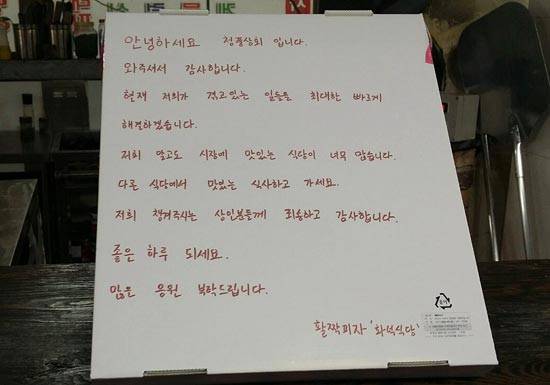 안녕하세요 정풍상회 입니다.
와주셔서 감사합니다.
현재 저희가 겪고있는 일들을 최대한 빠르게
해결하겠습니다.
저희 말고도 시장에 맛있는 식당이 너무 많습니다.
다른 식당에서 맛있는 식사하고 가세요.
저희 챙겨주시는 상인분들께 죄송하고 감사합니다.
좋은 하루 되세요.
많은 응원 부탁드립니다.
활짝피자 '화덕식당'